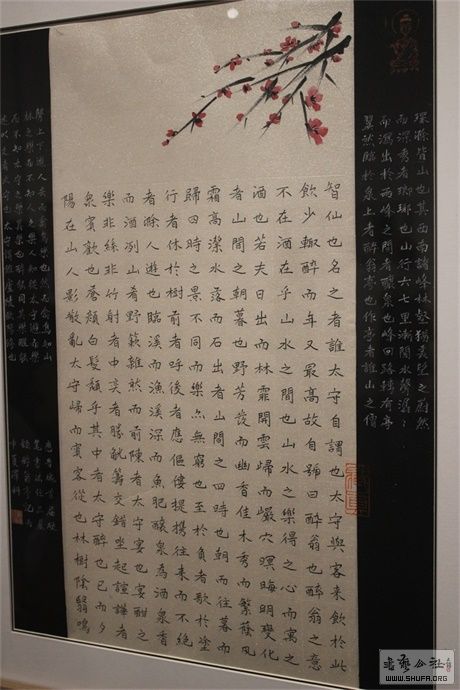 環滁皆山也其西南諸峰林壑猶美望之蔚然
而深秀者瑯琊也山行六七里漸聞水聲潺:
而瀉出於兩峰之間者釀泉也峰回路轉有亭
翼然臨於泉上者醉翁亭也作亭者誰山之僧
智仙也名之者誰太守自謂也太守與客來飲於此
飲少輒醉而年又最高故自號曰醉翁也醉翁之意
不在酒在乎山水之間也山水之樂得之心而寓之
酒也若夫日出而林霏開雲歸而巖穴暝晦明變化
者山間之朝暮也野芳發而幽香佳木秀而繁蔭風
霜高潔水落而石出者山間之四時也朝而往暮而
歸四時之景不同而樂亦無窮也至於負者歌於塗
行者休於樹前者呼後者應傴僂提攜往來而不絕
者滁人遊也臨溪而漁溪深而魚肥釀泉為酒泉香
而酒洌山肴野蔌雜然而前陳者太守宴也宴酣之
樂非絲非竹射者中奕者勝觥籌交錯坐起諠譁者
衆賓歡也蒼顏白髮頹乎其中者太守醉也已而夕
陽在山人影散亂太守歸而賓客從也林樹陰翳鳴
聲上下遊人去而禽鳥樂也然而禽鳥知山
林之樂而不知人之樂人知從太守遊而樂
而不知太守之樂其樂也醉能同其樂醒能
述以文者太守也太守謂誰廬陵歐陽修也
書藝公社
WWW.SHUFA.ORG